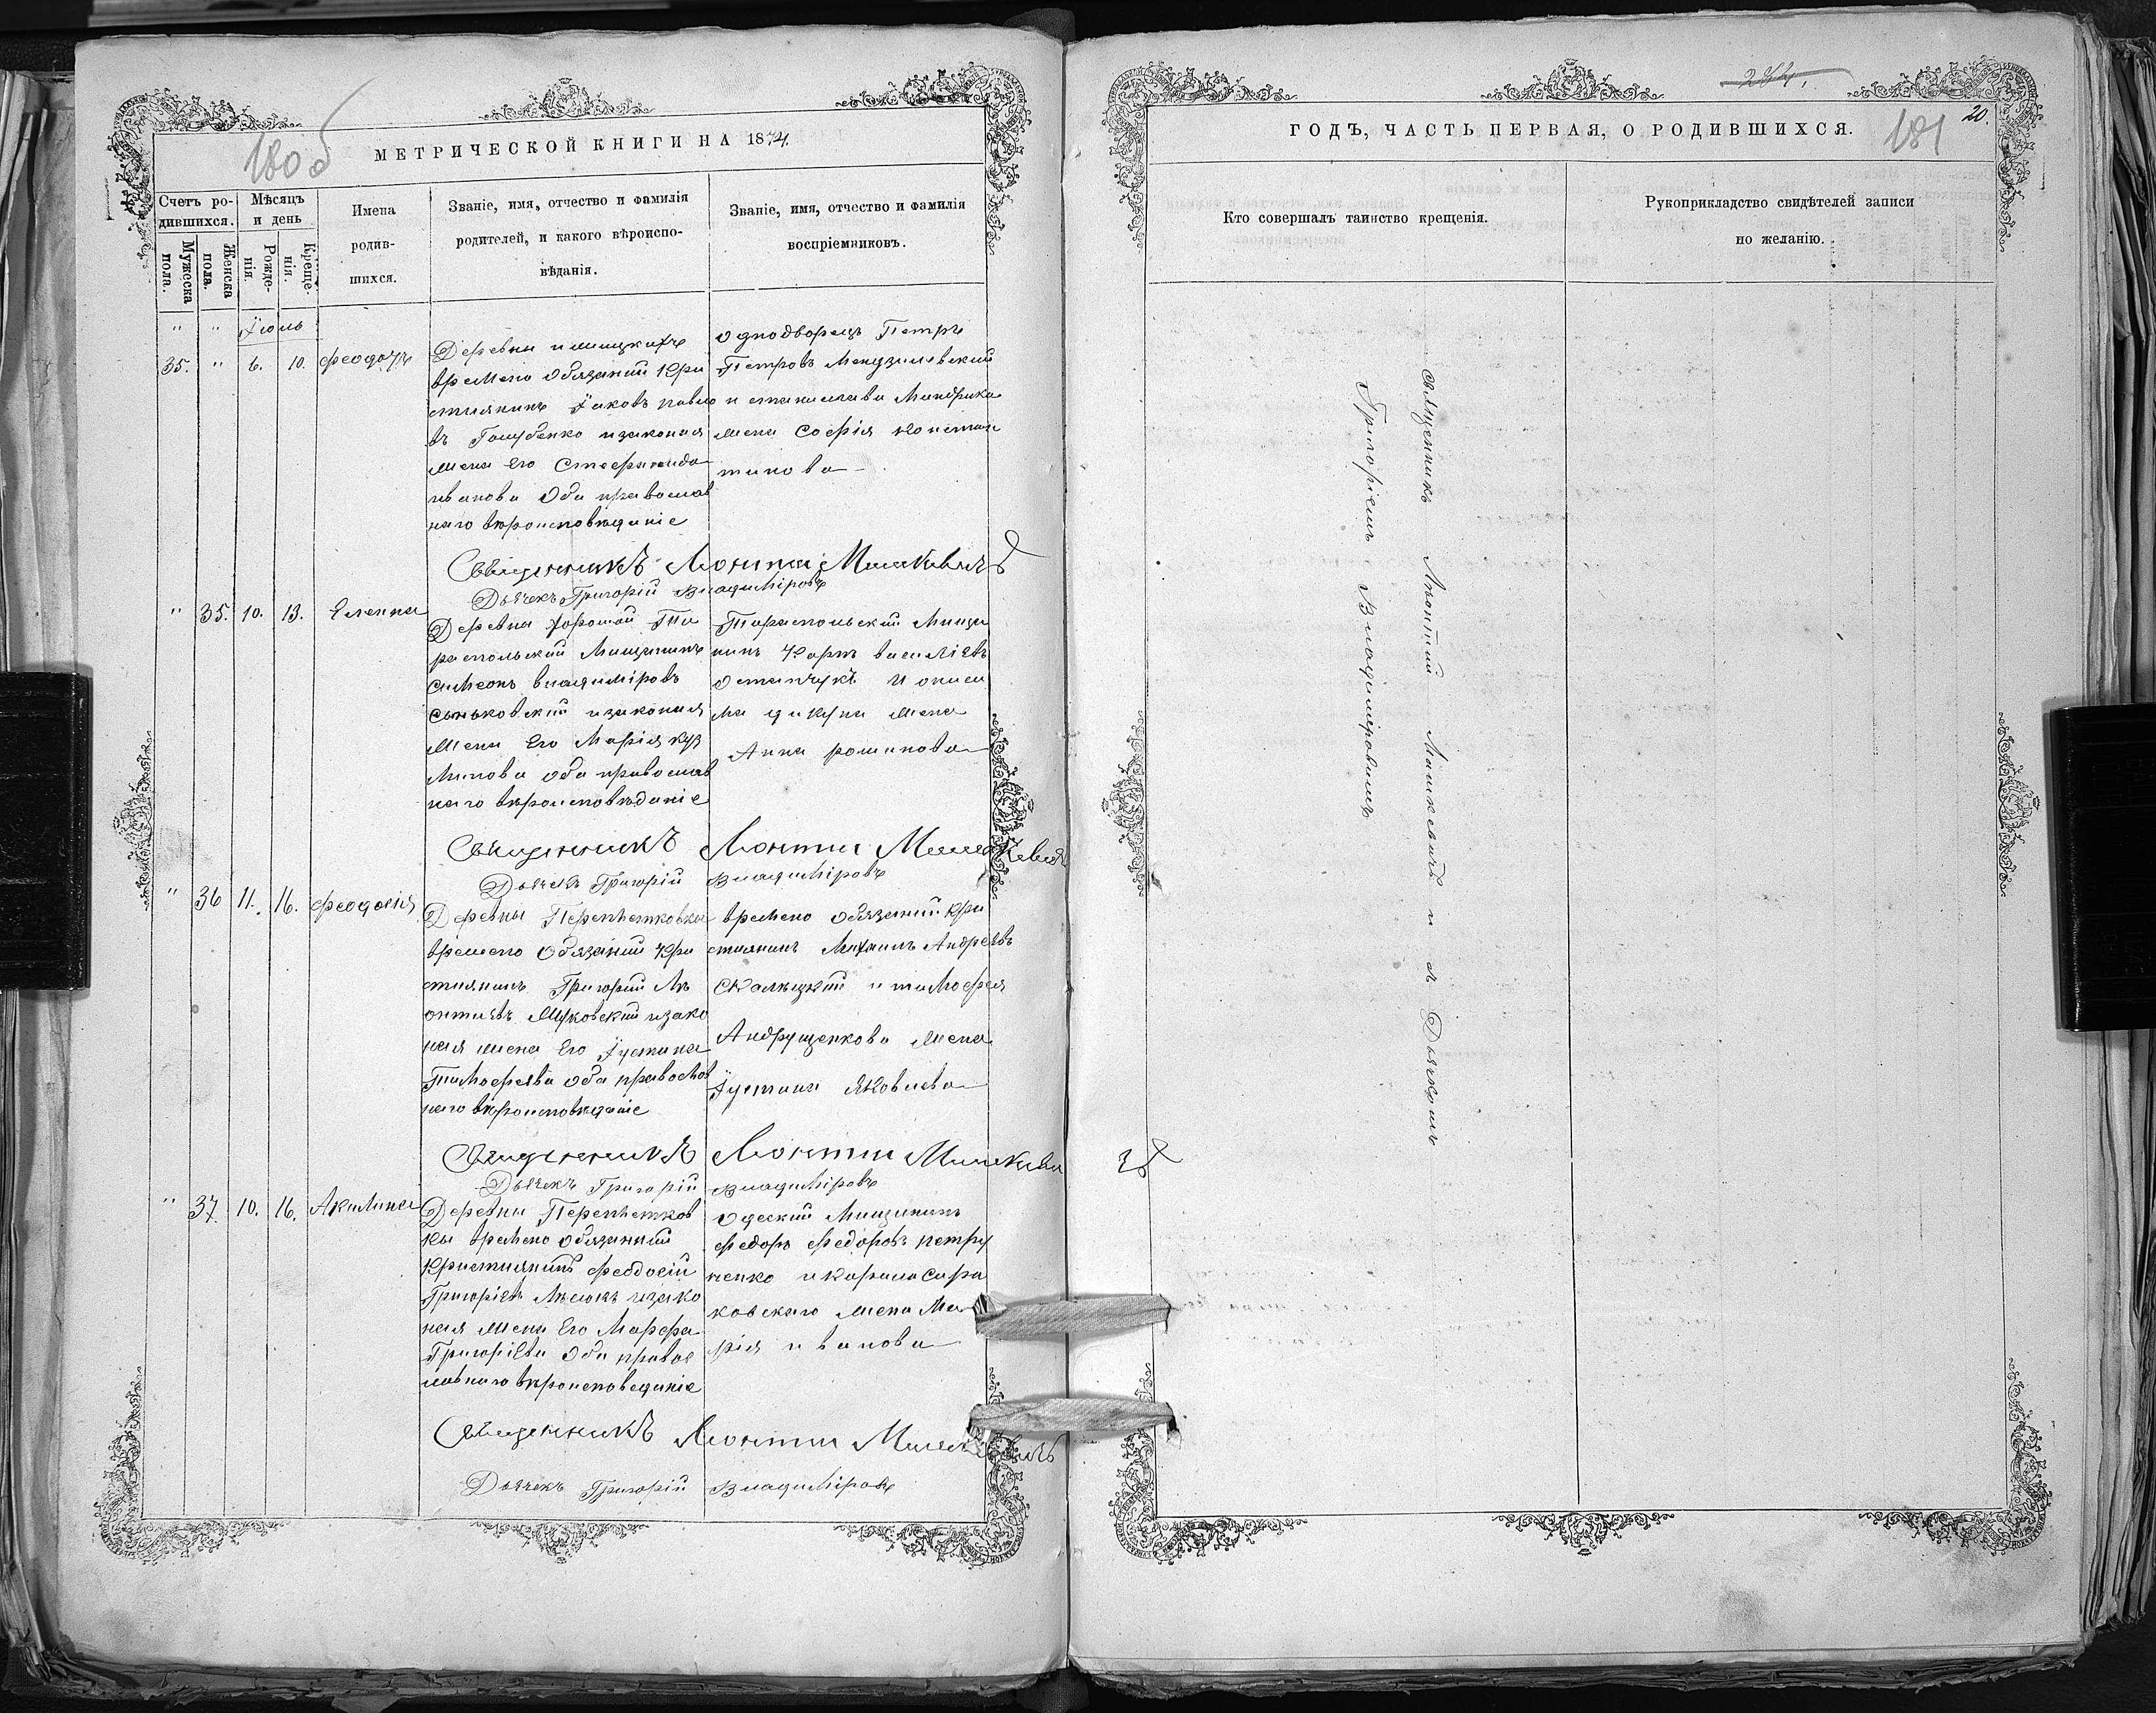 180 об
МЕТРИЧЕСКОЙ КНИГИ НА 1874
Счетъ ро-
дившихся.
Мужеска
пола.
Женска
пола.
Мѣсяцъ
и день
Рожде-
нія.
Креще-
нія.
Имена
родив-
шихся.
Званіе, имя, отчество и фамилія
родителей, и какого вѣроиспо-
вѣданія.
Званіе, имя, отчество и фамилія
воспріемниковъ.
" " Іюль
35. " 6. 10.
Деревни
времено обязаний кри
стиянинъ Іаковъ павло
въ Голубенко и законая
жена Его Стефанида
иванова Оба православ
наго вѣроисповѣданіе
однодворецъ Петръ
Петровъ
и станислава
жена Софія констан
тинова
Священникъ Леонтий Машкевичъ
Дьячекъ Григорій Владиміровъ
" 35. 10. 13. Еленна
Деревни Хорошой Ти
распольский Мищанинъ
Симеонъ владиміровъ
Сеньковский и законая
Жена Его Марія куз
Минова оба православ
наго вѣроисповѣданіе
Тираспольский Мища
нинъ Карпъ василіевъ
остапчукъ И
жена
Анна романова
Священникъ Леонтий Машкевичъ
Дьячекъ Григорій Владиміровъ
" 36 11. 16. Феодосія
Деревны
времено Обязаний Кри
стиянинъ Григорий Ле
онтиевъ Жуковский и зако
ная жена Его Іустина
Тимофеева оба православ
наго вѣроисповѣданіе
времено Обязаний Кри
стиянинъ Михаилъ Андреевъ
Скалецкий и тимофея
Андрущенкова жена
Іустина Яковлева
Священникъ Леонтий Машкевичъ
Дьячекъ Григорій Владиміровъ
" 37. 10. 16. Акилина
Деревны
кы времено обязанний
Кристиянинъ феодосій
Григоріевъ и зако
ная жена Его Марфа
Григоріева Оба правос
лавнаго вѣроисповеданіе
Одеский Мищанинъ
Федоръ Федоровъ петру
ненко и карпа Сира
ковскаго жена Ма
рія иванова
Священникъ Леонтий Машкевичъ
Дьячекъ Григорій Владиміровъ
20.
181
ГОДЪ, ЧАСТЬ ПЕРВАЯ, О РОДИВШИХСЯ.
Кто совершалъ таинство крещенія.
Рукоприкладство свидѣтелей записи
по желанію.
священникъ Леонтий Машкевичъ и съ Дьячкомъ
Григоріемъ Владиміровимъ